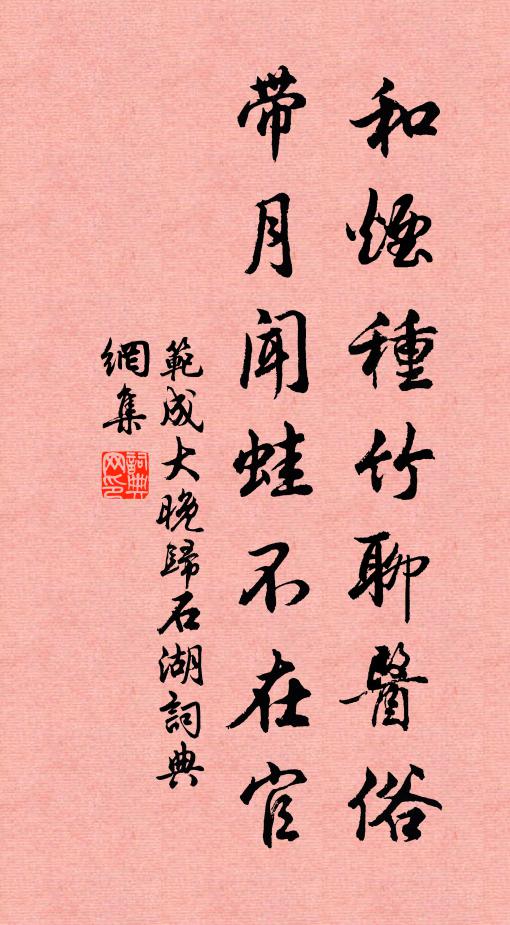 和煙種竹聊醫俗
带月闻蛙不在官
範成大晚歸石湖詞典
網集
詞典
网印